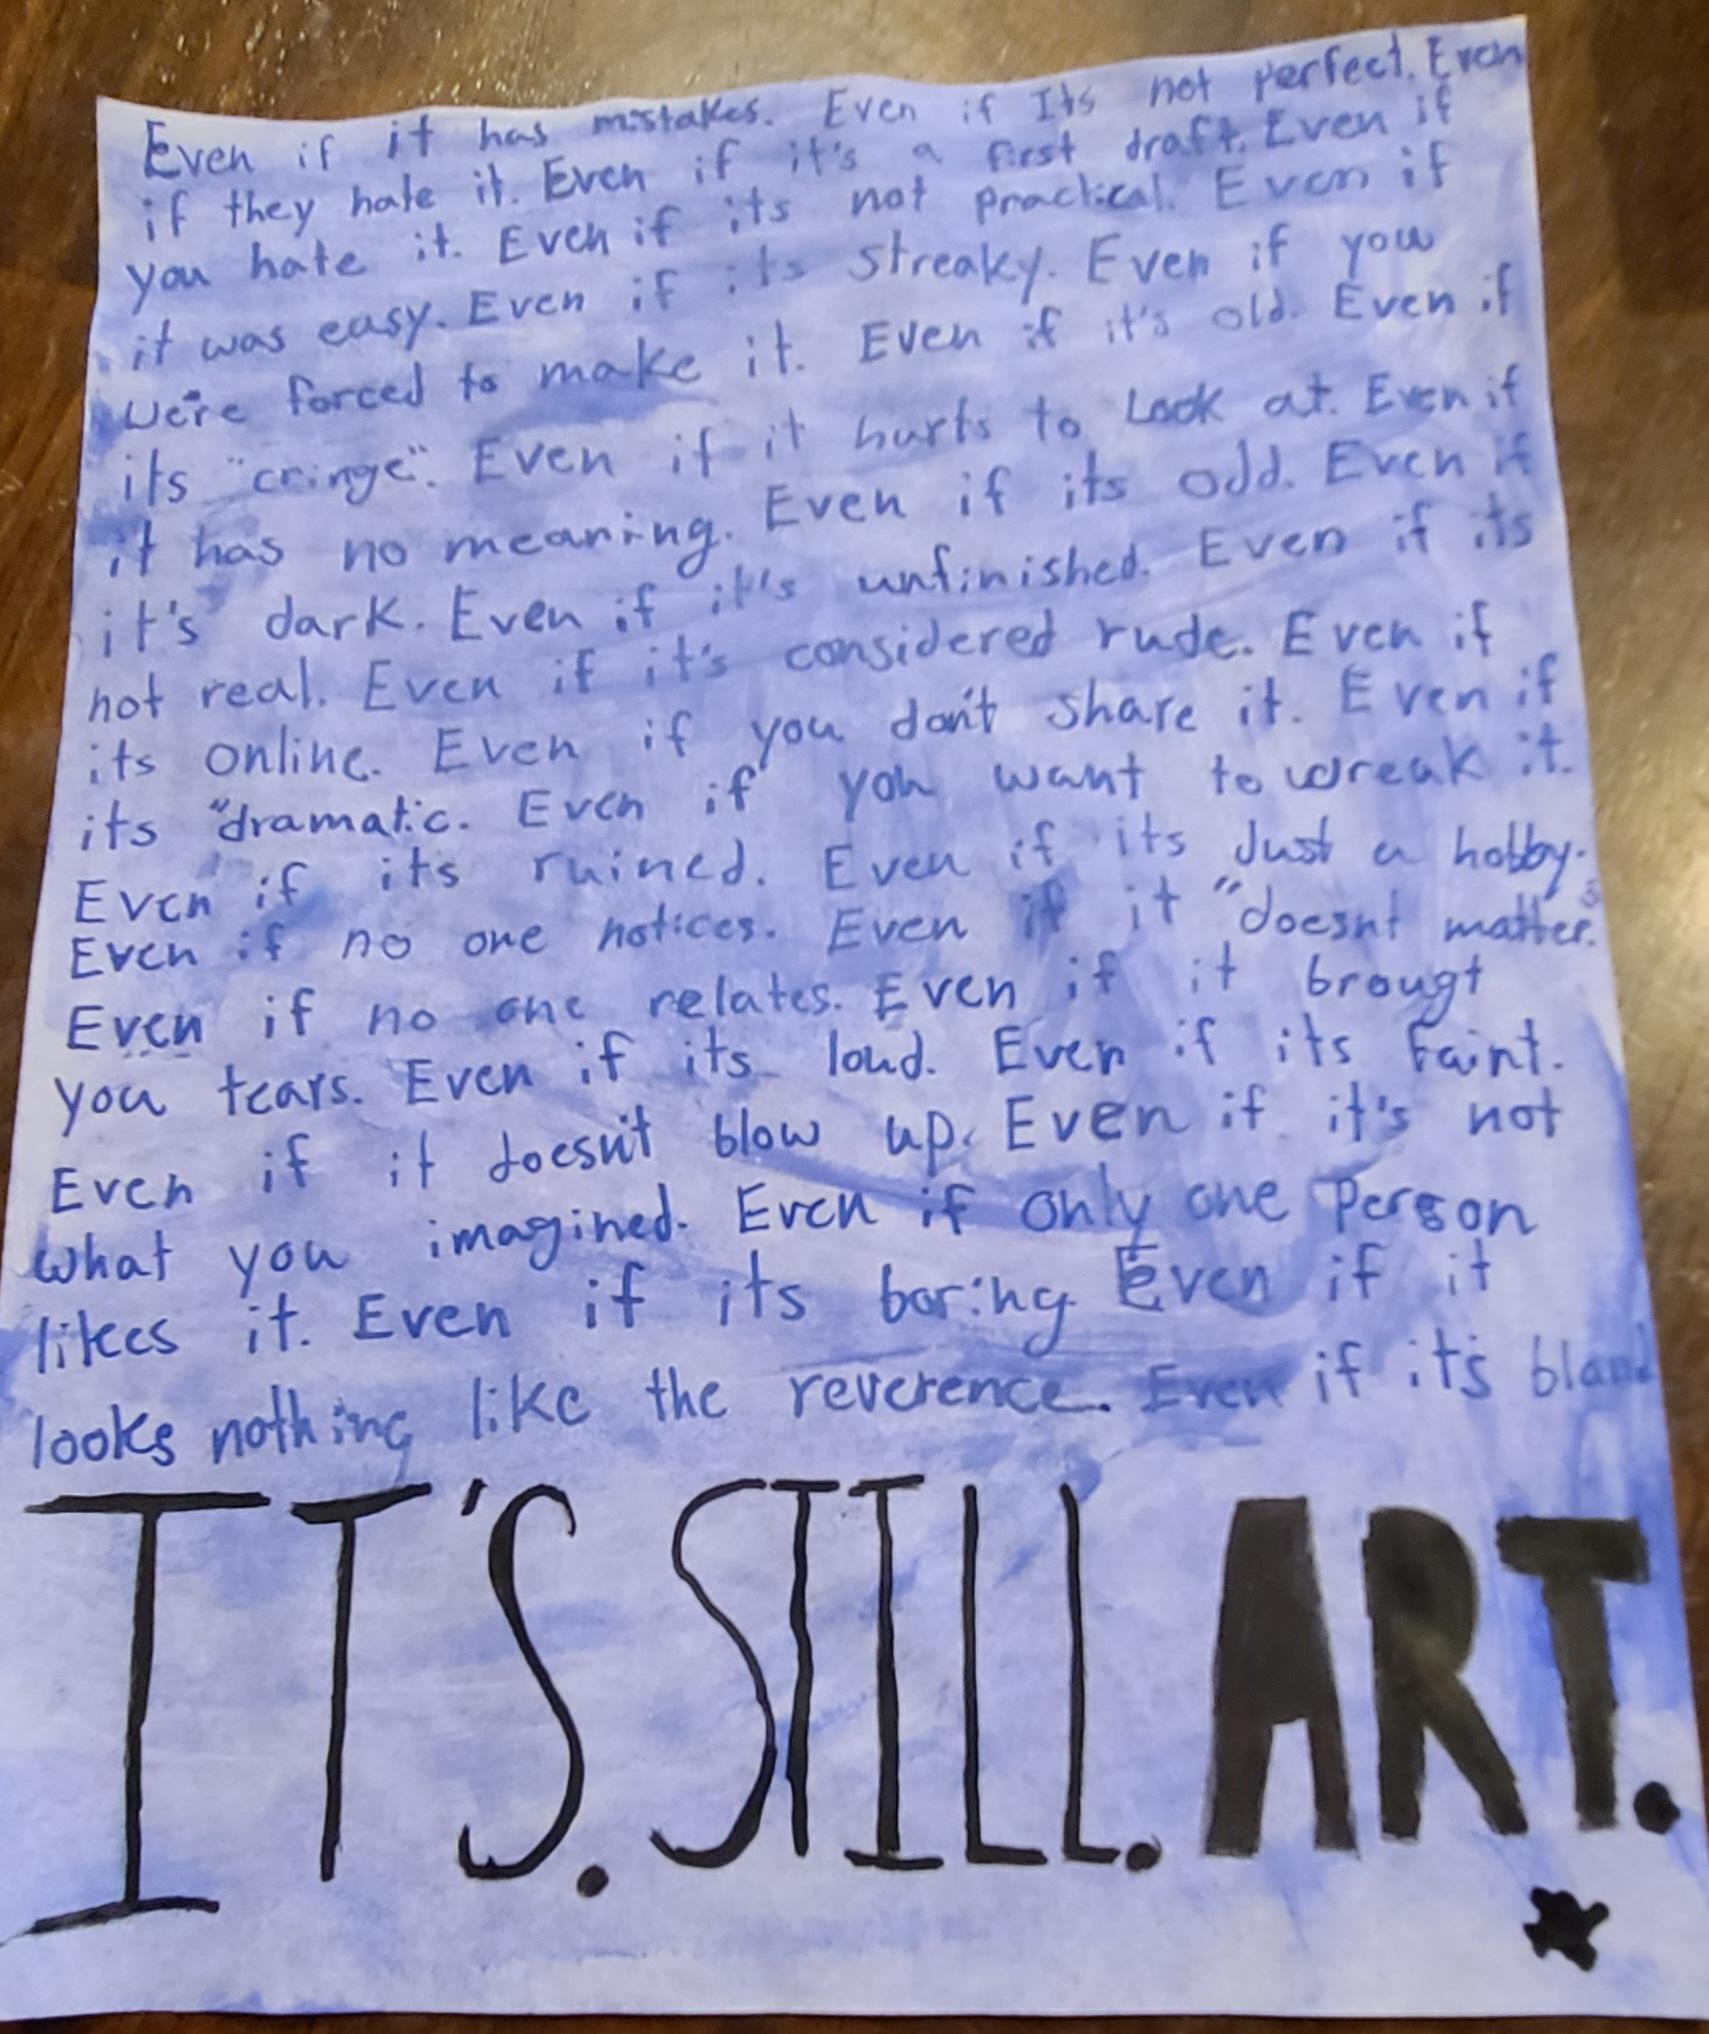 Even if it has mistakes. Even if Its not perfect. Even
if they hate it. Even if it's a first draft. Even if
you hate it. Even if its not practical. Even if
it was easy. Even if its streaky. Even if you
we're forced to make it. Even if it's old. Even if
its "cringe". Even if it hurts to Look at. Even if
it has no meaning. Even if its odd. Even if
it's dark. Even if it's unfinished. Even if its
not real. Even if it's considered rude. Even if
its online. Even if you don't share it. Even if
its "dramatic. Even if you want to wreak it.
Even if its ruined. Even if its Just a hobby.
Even if no one notices. Even if it "doesnt matter."
Even if no one relates. Even if it brougt
you tears. Even if its loud. Even if its Faint.
Even if it doesn't blow up. Even if it's not
what you imagined. Even if only one Person
likes it. Even if its boring. Even if it
looks nothing like the reverence. Even if it's bland
IT'S. STILL. ART.